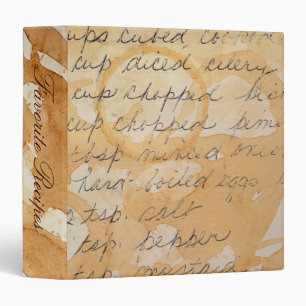 Favorite Recipes
cups cubed, cooked
cup diced celery
cup chopped
cup chopped
tbsp minced onion
hard-boiled eggs
tsp. salt
tsp. pepper
tsp. mustard